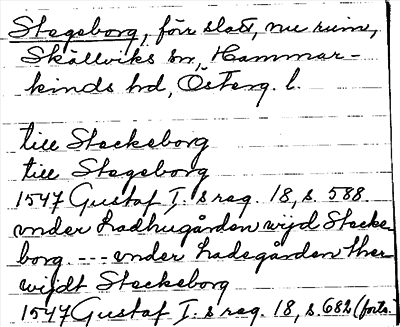 Stegeborg, förr slott, nu ruin,
Skällviks sn, Hammar-
kinds hd, Österg. l.
till Steckeborg
till Stegeborg
1547 Gustaf I.s reg. 18, s. 588.
vnder Ladhugården wijd Stecke-
borg. --- vnder Ladegården ther
wijdt Steckeborg
1547 Gustaf I.s reg. 18, s. 682 (forts.